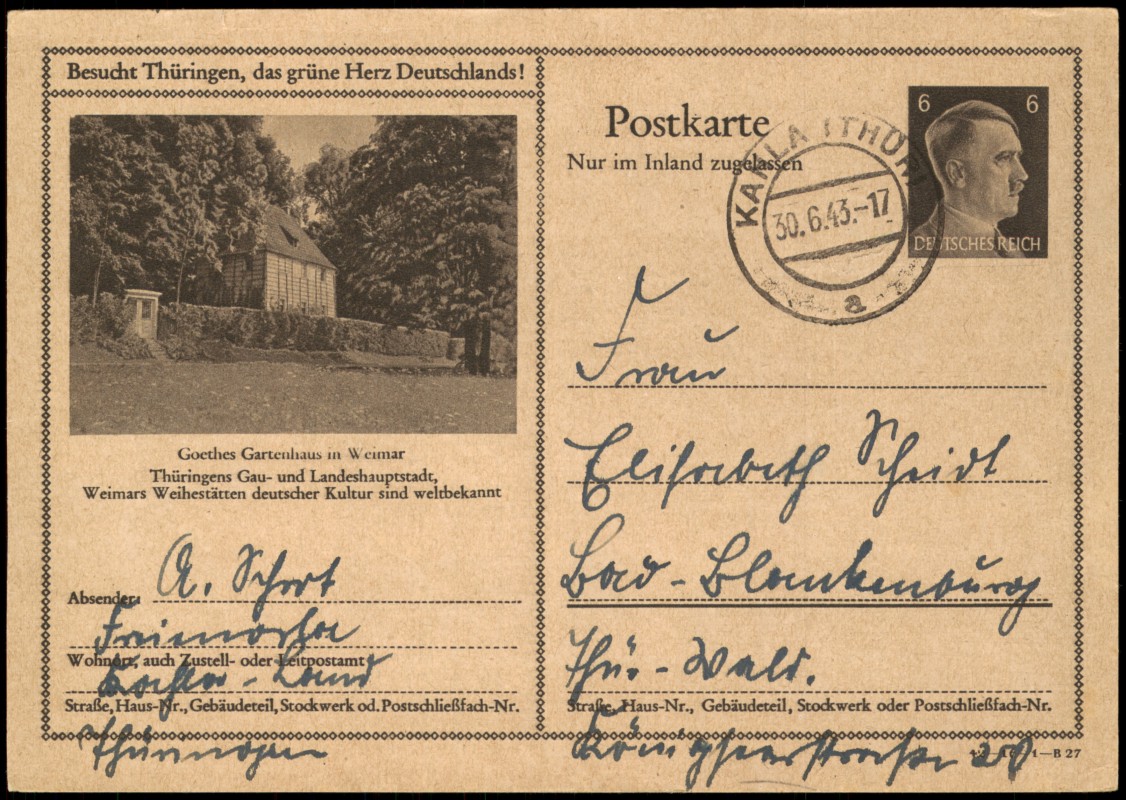 Besucht Thüringen, das grüne Herz Deutschlands!
Goethes Gartenhaus in Weimar
Thüringens Gau- und Landeshauptstadt,
Weimars Weihestätten deutscher Kultur sind weltbekannt
A.
Absender:
Wohnort, auch Zustell- oder Leitpostamt
Kahla - Land
Straße, Haus-Nr., Gebäudeteil, Stockwerk od. Postschließfach-Nr.
Thüringen
Postkarte
Nur im Inland zugelassen
6 6
DEUTSCHES REICH
KAHLA (THÜR)
30.6.43.-17
a
Frau
Elisabeth Scheidt
Bad-Blankenburg
Thür.-Wald.
Straße, Haus-Nr., Gebäudeteil, Stockwerk oder Postschließfach-Nr.
Königseerstraße
1—B 27